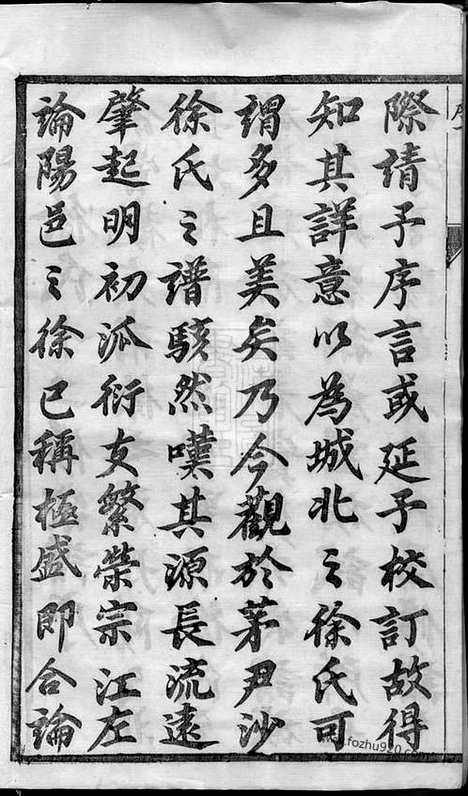 際請予序言或延予校訂故得
知其詳意以為城北之徐氏可
謂多且美矣乃今觀於茅尹沙
徐氏之譜駭然嘆其源長流遠
肇起明初泒衍支繁榮宗江左
論陽邑之徐已稱極盛即合論
www.fozhu920.com